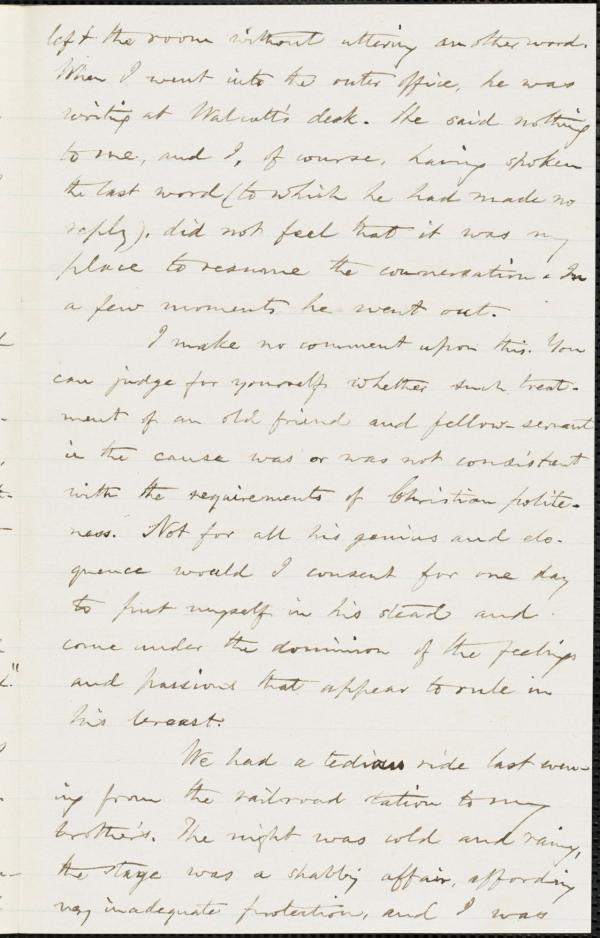 left the room without uttering another word.
When I went into the outer office, he was
writing at Walcutt's desk. He said nothing
to me, and I, of course, having spoken
the last word (to which he had made no
reply), did not feel that it was my
place to resume the conversation. In
a few moments he went out.
I make no comment upon this. You
can judge for yourself whether such treat-
ment of an old friend and fellow-servant
in the cause was or was not consistent
with the requirements of Christian polite-
ness. Not for all his genius and elo-
quence would I consent for one day
to put myself in his stead and
come under the dominion of the feelings
and passions that appear to rule in
his breast.
We had a tedious ride last even-
ing from the railroad station to my
brother's. The night was cold and rainy,
the stage was a shabby affair, affording
very inadequate protection, and I was